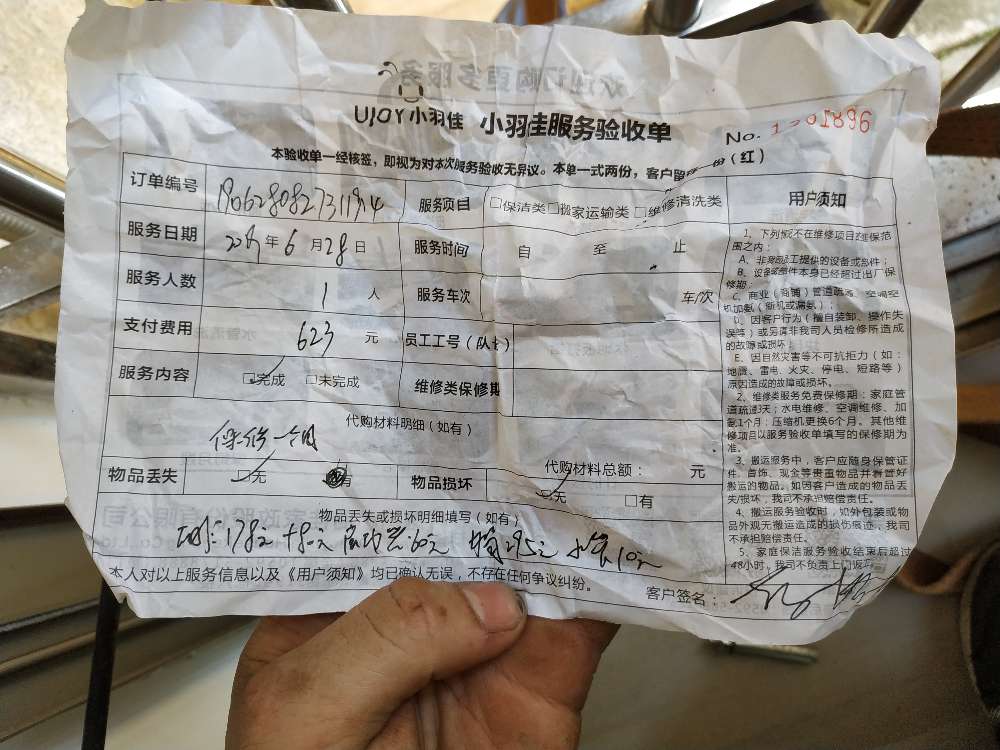 UJOY小羽佳 小羽佳服务验收单
No. 1301896
本验收单一经核签，即视为对本次服务验收无异议。本单一式两份，客户留 份（红）
订单编号
服务项目 □保洁类□搬家运输类□维修清洗类
服务日期 年6月28日
服务时间 自 至 止
服务人数 1 人
服务车次 车/次
支付费用 623 元
员工工号（队长）
服务内容 □完成 □未完成
维修类保修期
代购材料明细（如有）
保修一个月
代购材料总额： 元
物品丢失 □无 有
物品损坏 □无 □有
物品丢失或损坏明细填写（如有）
178元 +80元 60元 295元 10元
本人对以上服务信息以及《用户须知》均已确认无误，不存在任何争议纠纷。
客户签名：
用户须知
1、下列情况不在维修项目及维保范
围之内：
A、非我司员工提供的设备或部件；
B、设备或部件本身已经超过出厂保
修期；
C、商业（商铺）管道疏通、空调空
机加氨（新机或漏氨）；
D、因客户行为（擅自装卸、操作失
误等）或另请非我司人员检修所造成
的故障或损坏；
E、因自然灾害等不可抗拒力（如：
地震、雷电、火灾、停电、短路等）
原因造成的故障或损坏。
2、维修类服务免费保修期：家庭管
道疏通3天；水电维修、空调维修、加
氨1个月；压缩机更换6个月。其他维
修项目以服务验收单填写的保修期为
准。
3、搬运服务中，客户应随身保管证
件、首饰、现金等贵重物品并看管好
搬运的物品。如因客户造成的物品丢
失/损坏，我司不承担赔偿责任。
4、搬运服务验收时，如外包装或物
品外观无搬运造成的损伤痕迹，我司
不承担赔偿责任。
5、家庭保洁服务验收结束后超过
48小时，我司不负责上门返